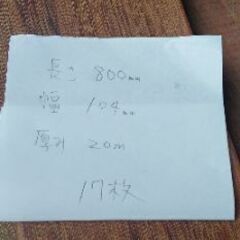 長さ 800mm
幅 109mm
厚み 20m
17枚